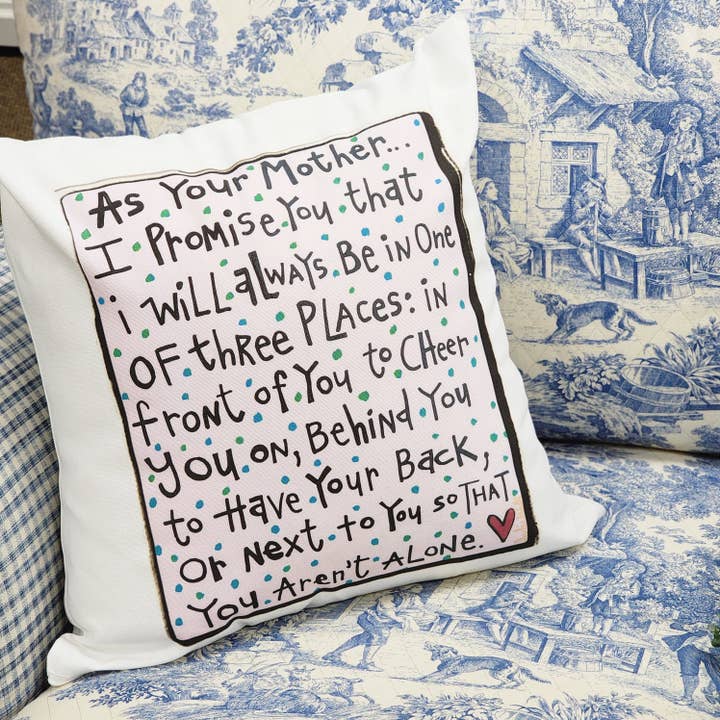 As Your Mother...
I PRoMiSe You that
i WiLL alWAYS Be iN One
OF thRee PLAces: iN
fRoNt of You to CHeeR
you oN, BeHiNd You
to HAve YouR BacK,
OR NeXt to You so THAT
You AReN't ALoNe.